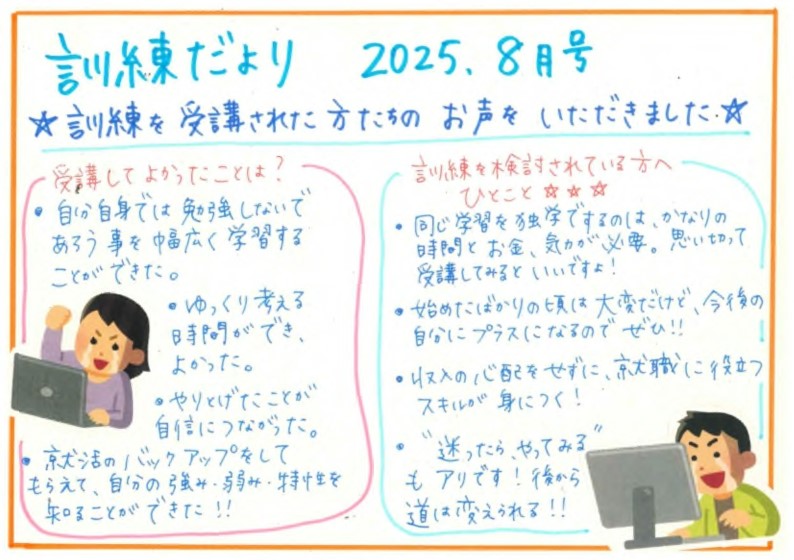 訓練だより 2025.8月号
☆訓練を受講された方たちのお声をいただきました.☆
受講してよかったことは?
・自分自身では勉強しないで
あろう事を幅広く学習する
ことができた。
・ゆっくり考える
時間ができ、
よかった。
・やりとげたことが
自信につながった。
・就活のバックアップをして
もらえて、自分の強み・弱み・特性を
知ることができた!!
訓練を検討されている方へ
ひとこと☆☆☆
・同じ学習を独学でするのは、かなりの
時間とお金、気力が必要。思い切って
受講してみるといいですよ!
・始めたばかりの頃は大変だけど、今後の
自分にプラスになるのでぜひ!!
・収入の心配をせずに、就職に役立つ
スキルが身につく!
・“迷ったら、やってみる”
もアリです!後から
道は変えられる!!